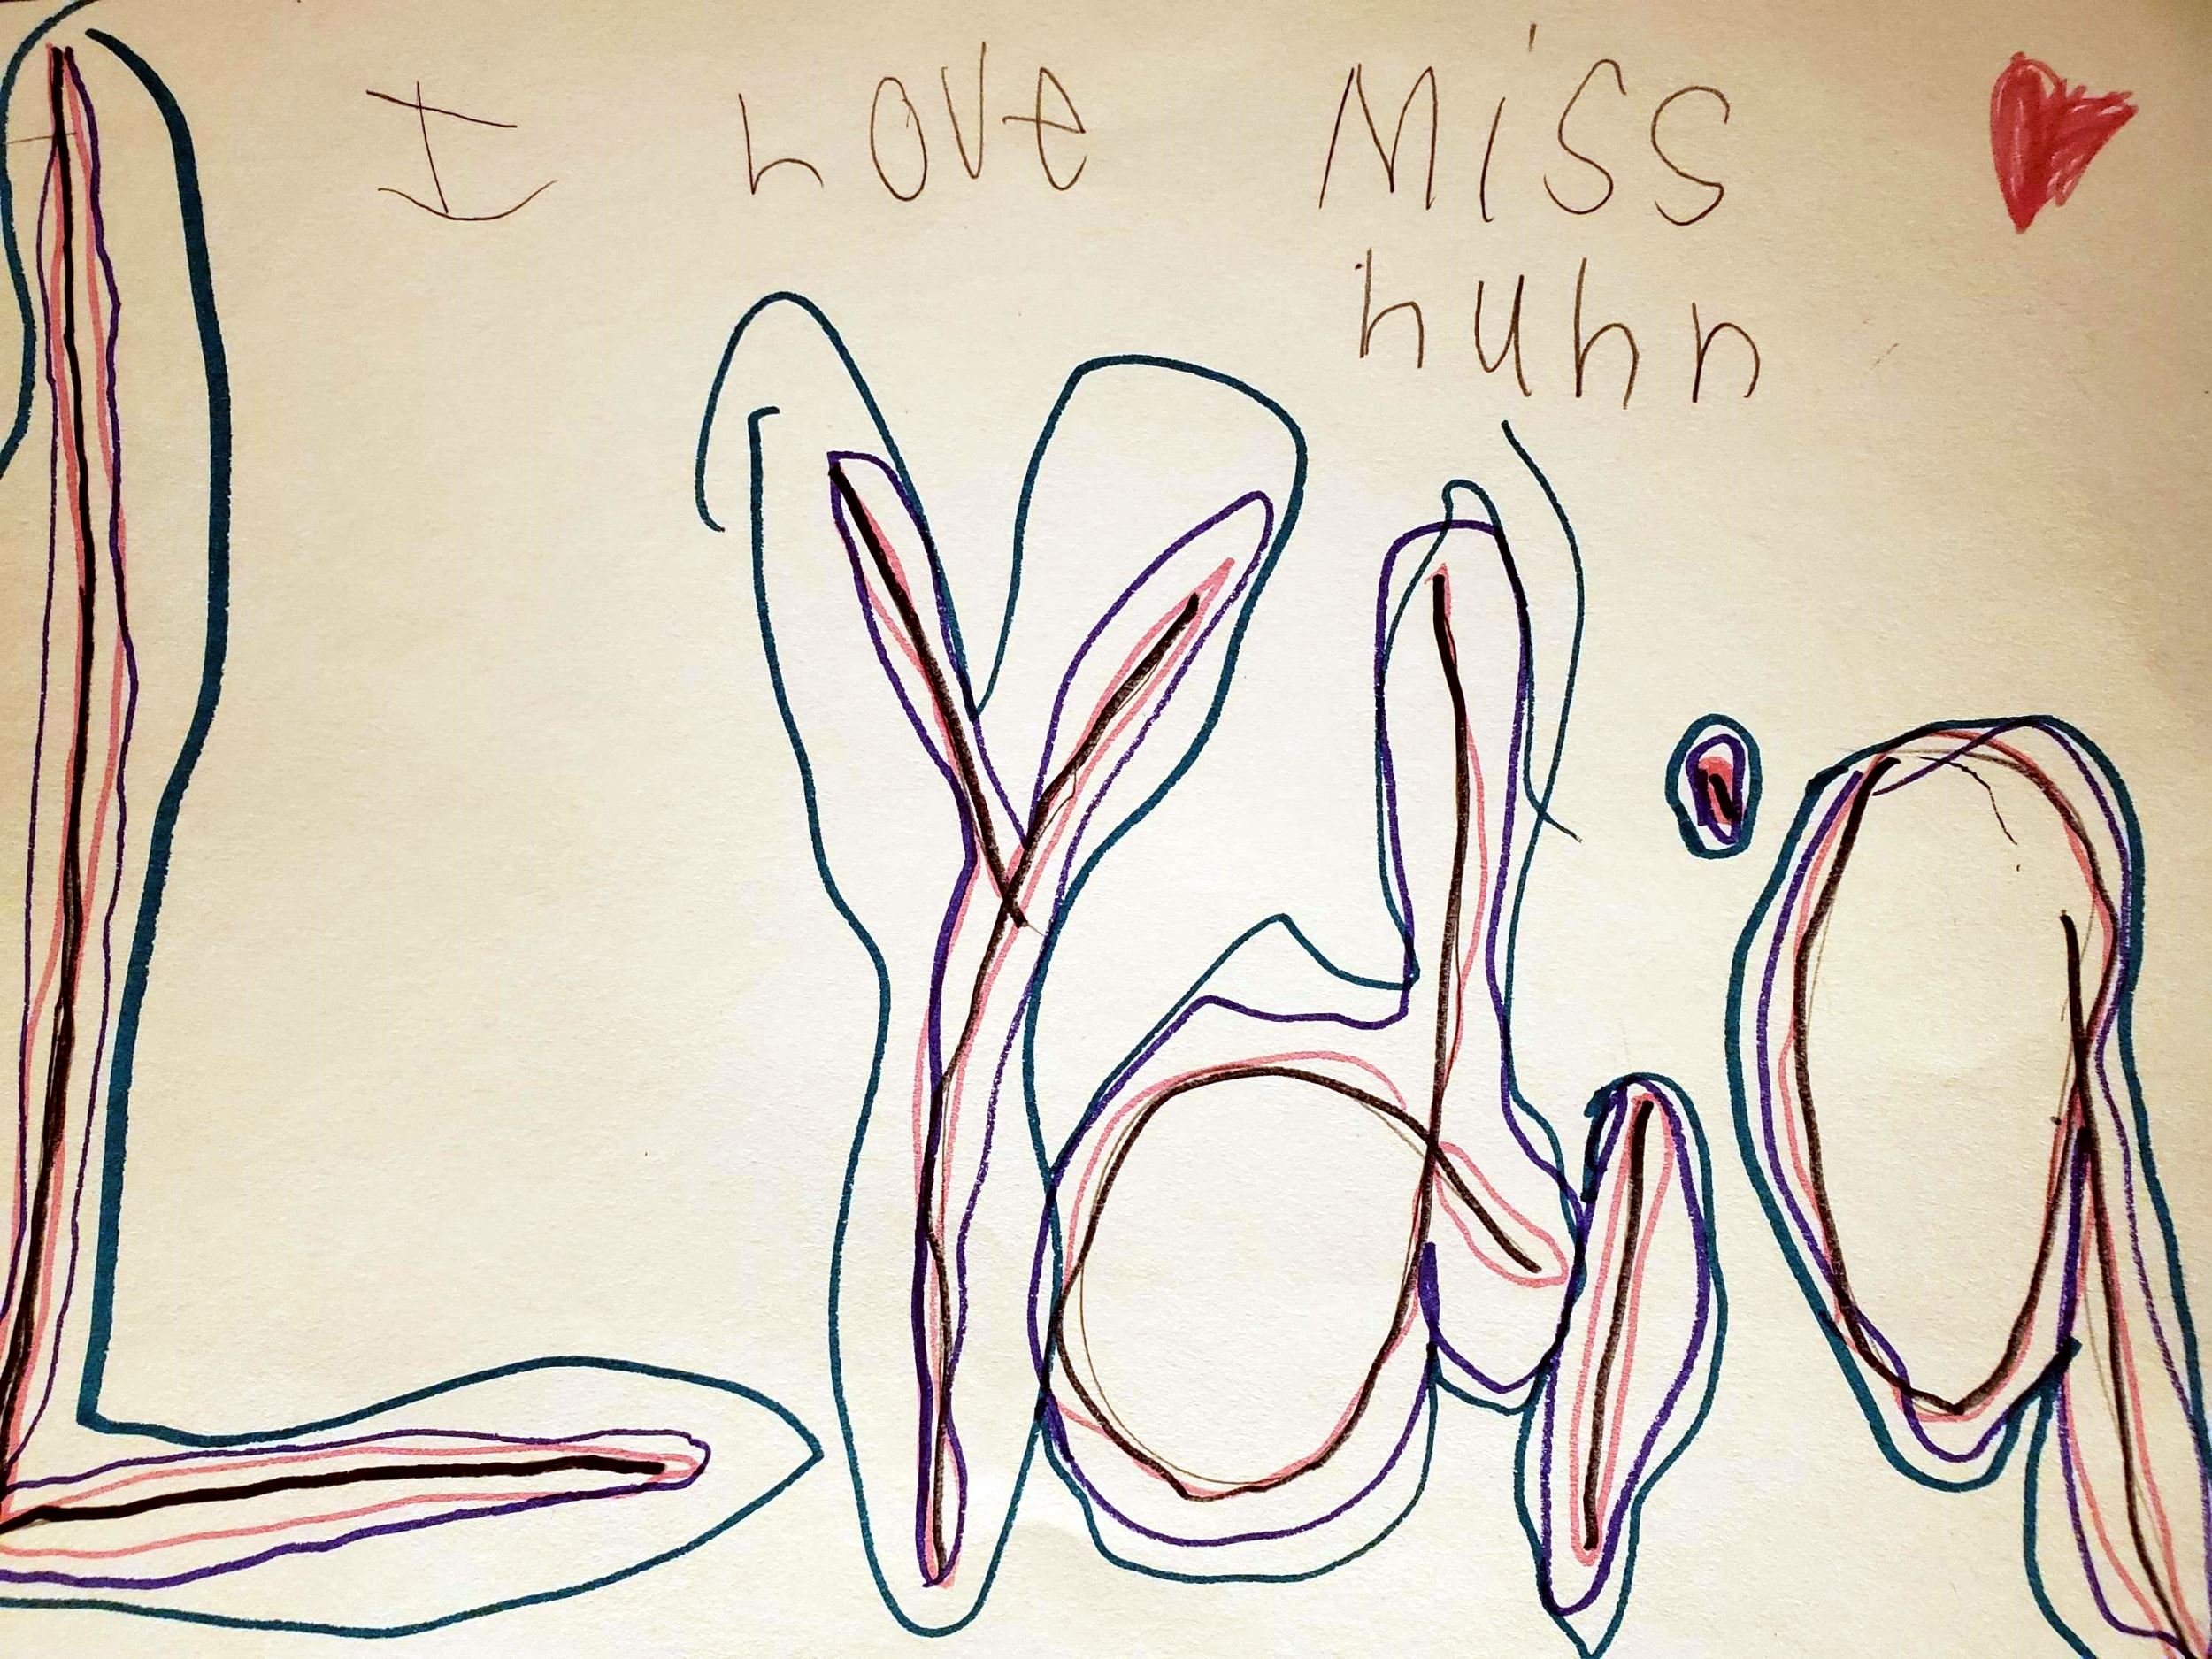 I Love Miss
huhn
Lydia